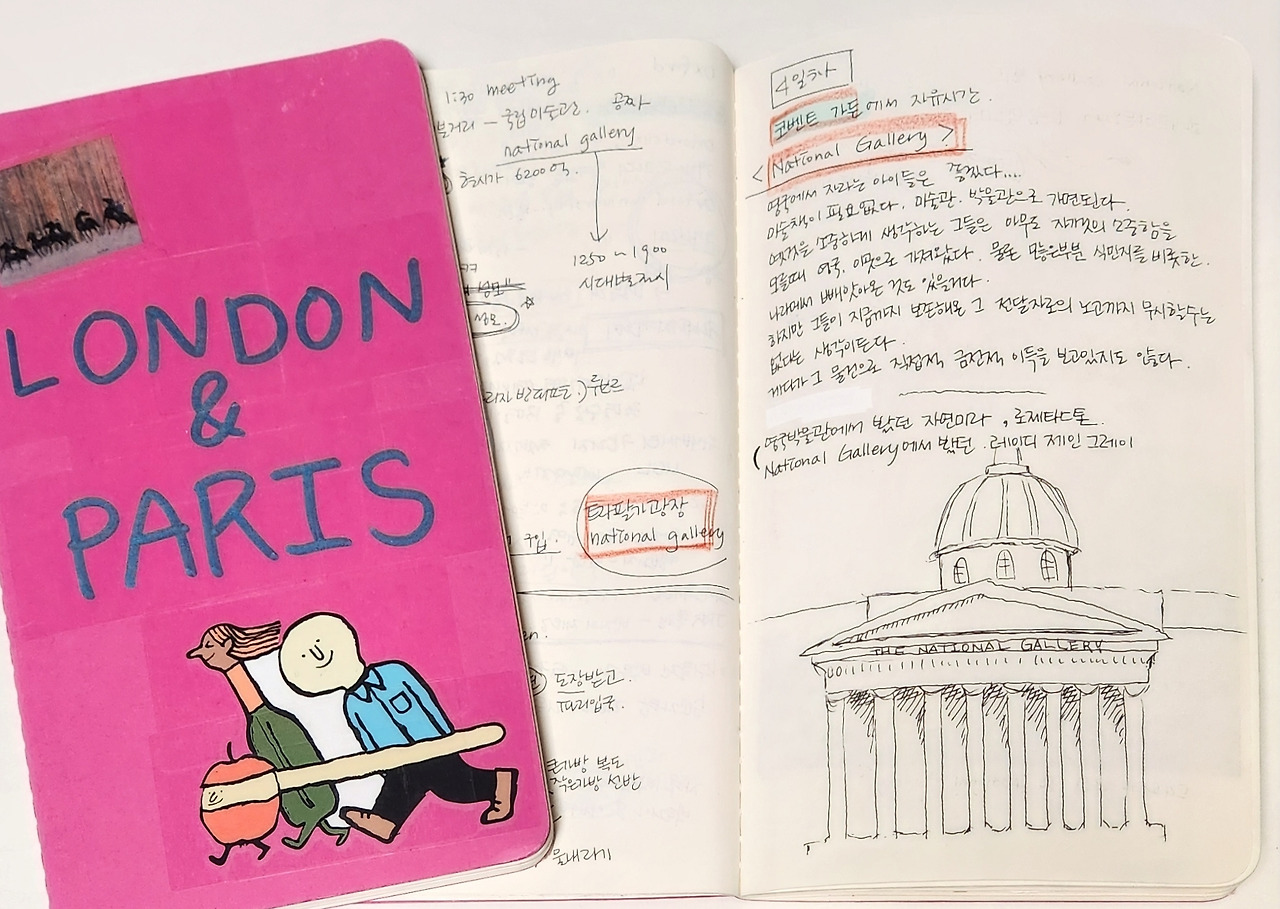 LONDON
&
PARIS
1:30 meeting
분거리 – 국립미술관. 공짜
national gallery
호시가 6200억.
1250~1900
시대별전시
성모.
루브르
구입.
트라팔가광장
national gallery
도장받고.
파리입국.
큰가방 복도
작은가방 선반
4일차
코벤트 가든에서 자유시간.
<National Gallery>
영국에서 자라는 아이들은 좋겠다...
미술책이 필요없다. 미술관. 박물관으로 가면된다.
옛것을 소중하게 생각하는 그들은 아무도 자기것의 소중함을
모를때 영국. 이곳으로 가져왔다. 물론 많은부분 식민지를 비롯한.
나라에서 빼앗아온 것도 있을거다.
하지만 그들이 지금까지 보존해온 그 전달자로의 노고까지 무시할수는
없다는 생각이든다.
게다가 그 물건으로 직접적 금전적 이득을 보고있지도 않다.
영국박물관에서 봤던 자연미라, 로제타스톤.
National Gallery에서 봤던. 레이디 제인 그레이
THE NATIONAL GALLERY